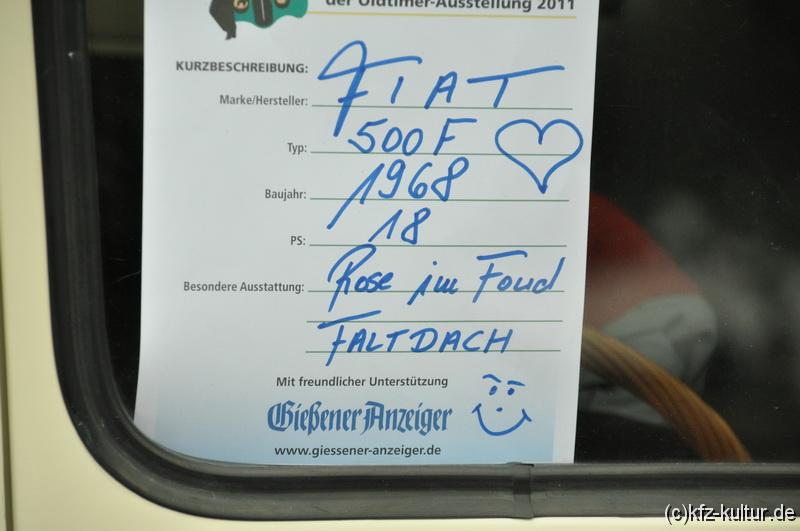 der Oldtimer-Ausstellung 2011
KURZBESCHREIBUNG:
Marke/Hersteller: FIAT
Typ: 500 F
Baujahr: 1968
PS: 18
Besondere Ausstattung: Rose im Foud
FALTDACH
Mit freundlicher Unterstützung
Gießener Anzeiger
www.giessener-anzeiger.de
(c)kfz-kultur.de